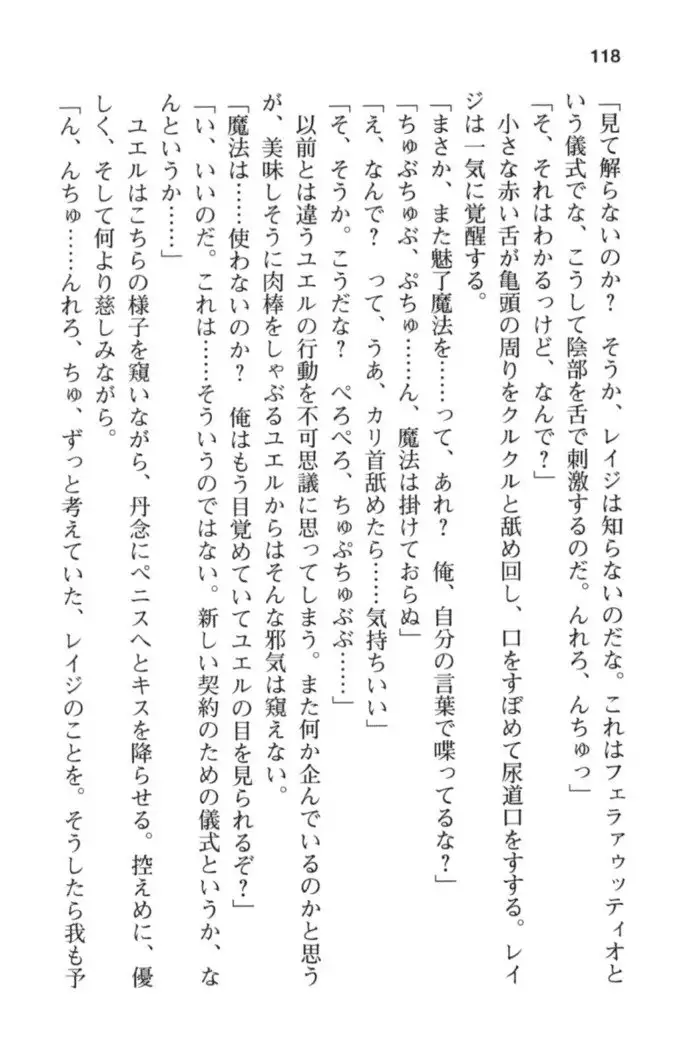 118
「見て解らないのか？　そうか、レイジは知らないのだな。これはフェラァゥッティオと
いう儀式でな、こうして陰部を舌で刺激するのだ。んれろ、んちゅっ」
「そ、それはわかるっけど、なんで？」
　小さな赤い舌が亀頭の周りをクルクルと舐め回し、口をすぼめて尿道口をすする。レイ
ジは一気に覚醒する。
「まさか、また魅了魔法を……って、あれ？　俺、自分の言葉で喋ってるな？」
「ちゅぶちゅぶ、ぷちゅ……ん、魔法は掛けておらぬ」
「え、なんで？　って、うあ、カリ首舐めたら……気持ちいい」
「そ、そうか。こうだな？　ぺろぺろ、ちゅぷちゅぶぶ……」
　以前とは違うユエルの行動を不可思議に思ってしまう。また何か企んでいるのかと思う
が、美味しそうに肉棒をしゃぶるユエルからはそんな邪気は窺えない。
「魔法は……使わないのか？　俺はもう目覚めていてユエルの目を見られるぞ？」
「い、いいのだ。これは……そういうのではない。新しい契約のための儀式というか、な
んというか……」
　ユエルはこちらの様子を窺いながら、丹念にペニスへとキスを降らせる。控えめに、優
しく、そして何より慈しみながら。
「ん、んちゅ……んれろ、ちゅ、ずっと考えていた、レイジのことを。そうしたら我も予